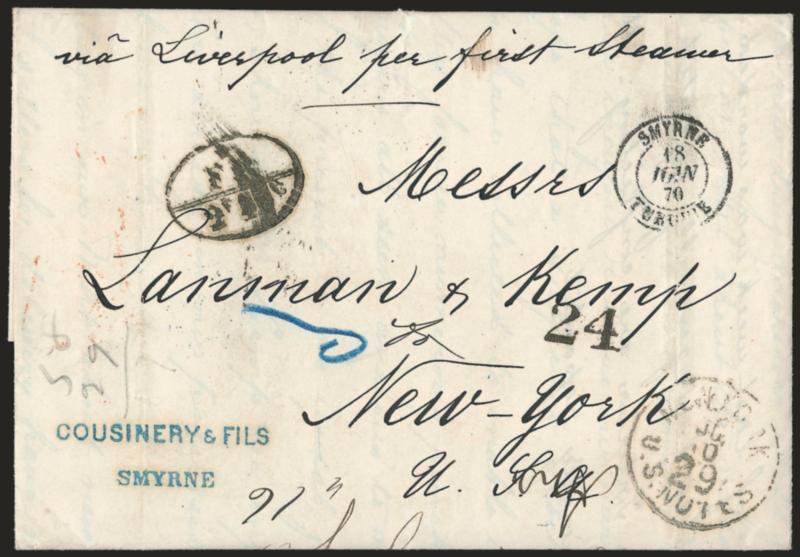 viā Liverpool per first Steamer
SMYRNE
18
JUIN
70
TURQUIE
Messrs
Lanman & Kemp
24
New-York
U. S.
COUSINERY & FILS
SMYRNE
54
29
NEW YORK
29
U.S. NOTES